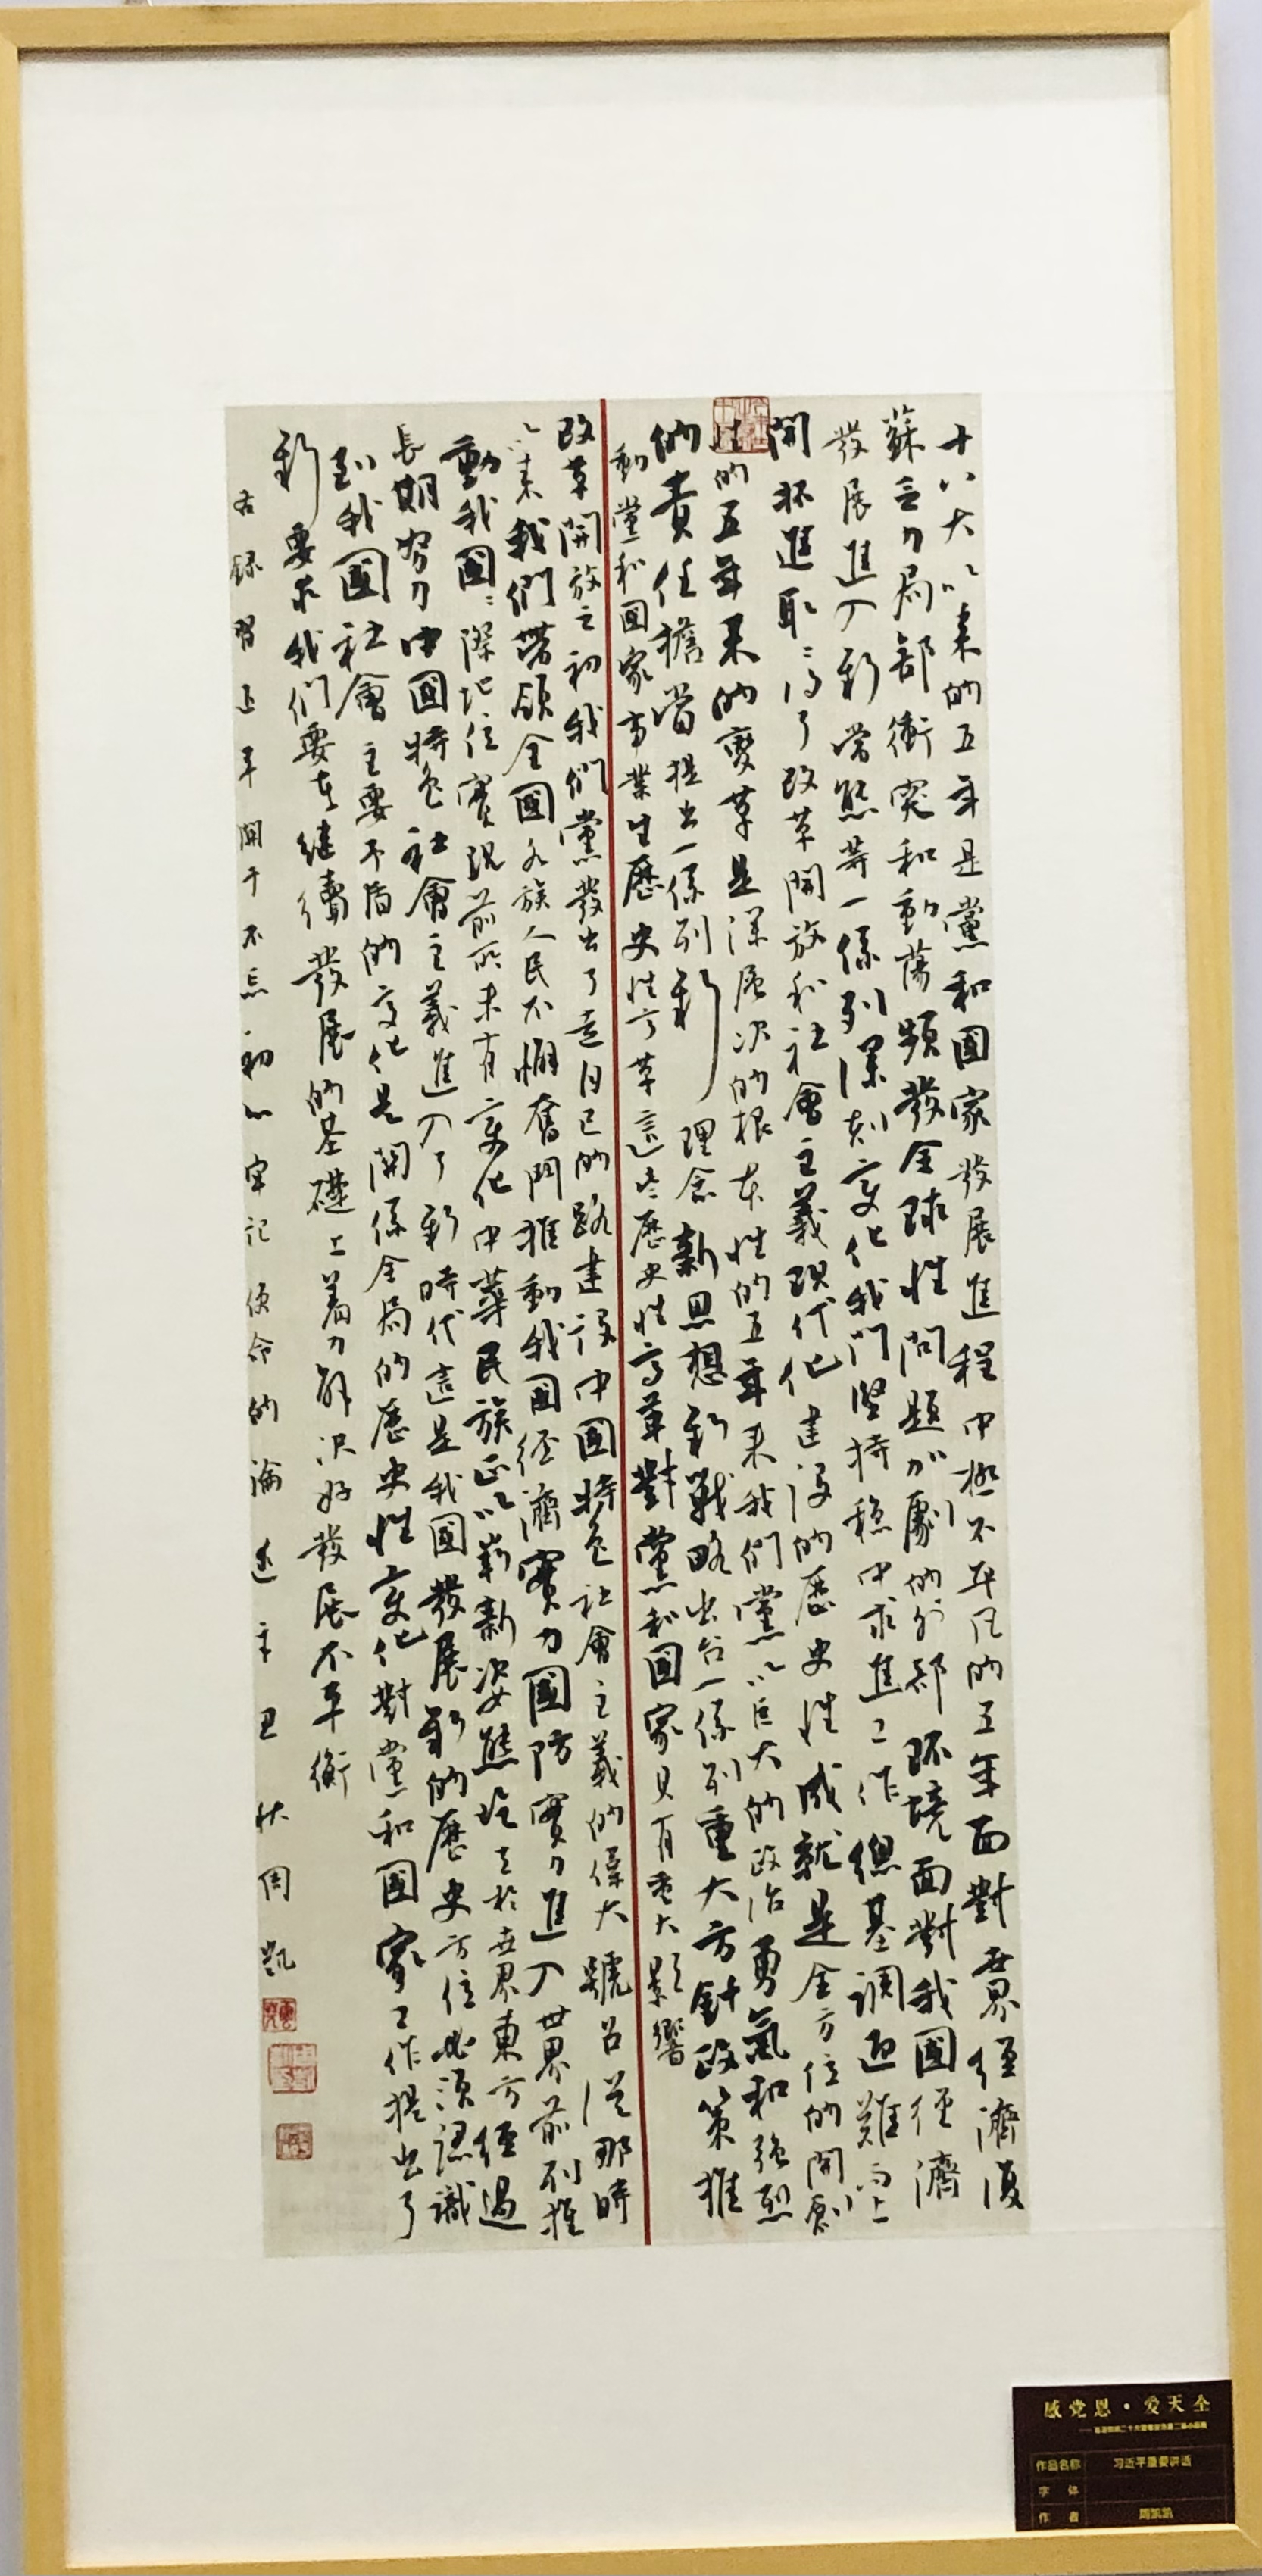 十八大以来的五年是黨和國家發展進程中極不平凡的五年面對世界經濟復
蘇乏力局部衝突和動蕩頻發全球性問題加劇的外部环境面對我國經濟
發展進入新常態等一係列深刻变化我們堅持穩中求進工作總基調迎難而上
開拓進取取得了改革開放和社會主義現代化建設的歷史性成就是全方位的開創
性的五年来的變革是深层次的根本性的五年来我們黨以巨大的政治勇氣和強烈
的責任擔當提出一係列新理念新思想新戰略出台一係列重大方針政策推
動黨和國家事業生歷史性变革這些歷史性变革對黨和國家具有重大影響
改革開放之初我們黨發出了走自己的路建设中國特色社會主義的偉大號召從那時
以来我們帶領全國各族人民不懈奮鬥推動我國經濟實力國防實力進入世界前列推
動我國〻際地位實現前所未有变化中華民族正以嶄新姿態屹立於世界東方經過
長期努力中國特色社會主義進入了新時代這是我國發展新的歷史方位必須認識
到我國社會主要矛盾的变化是關係全局的歷史性变化對黨和國家工作提出了
新要求我们要在继續發展的基礎上着力解决好發展不平衡
右錄習近平關于不忘初心牢記使命的論述辛丑秋周凱
感党恩·爱天全
作品名称 习近平重要讲话
字体
作者 周凯凯